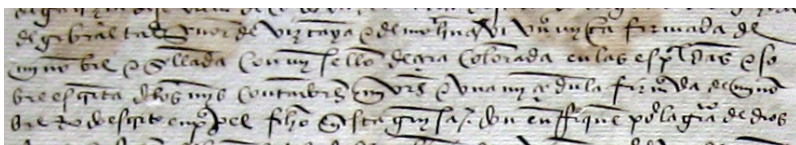 de gibraltar e señor de vizcaya e de molina vi vna mi carta firmada de
mi nonbre e sellada con mi sello de çera colorada en las espaldas e so
bre escripta de los mis contadores mayores e vna mi çedula firmada de mi non
bre todo escripto en papel fecho en esta guisa. don enrrique por la graçia de dios